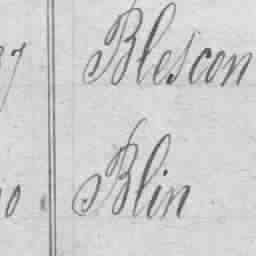 97 Blescon
90 Blin